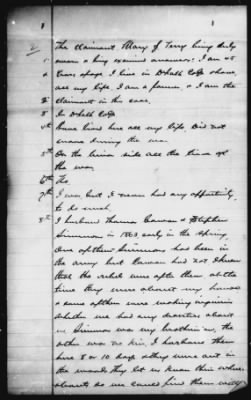 2
The claimant Mary J Terry being duly
sworn & being examined answers: I am 45
Years of age I live in DeKalb Co Ga & have
all my life. I am a farmer, & I am the
claimant in this case.
In DeKalb Co Ga
4th have lived here all my life. Did not
move during the war.
5th On the Union side all the time of
the war
6th No
7th I was but I never had any opportunity
to do much
8th I harbored Thomas Cowan & Stephen
Simmons in 1863 early in the Spring
One of them Simmons had been in
the army but Cowan had not I knew
that the rebels were after them at the
time they were about my house
& some of them were making inquiries
whether we had any deserters about
us Simmons was my brother in law, the
other was no kin, I harbored them
here 8 or 10 days others were out in
the woods they let us know their where
abouts so we could find them